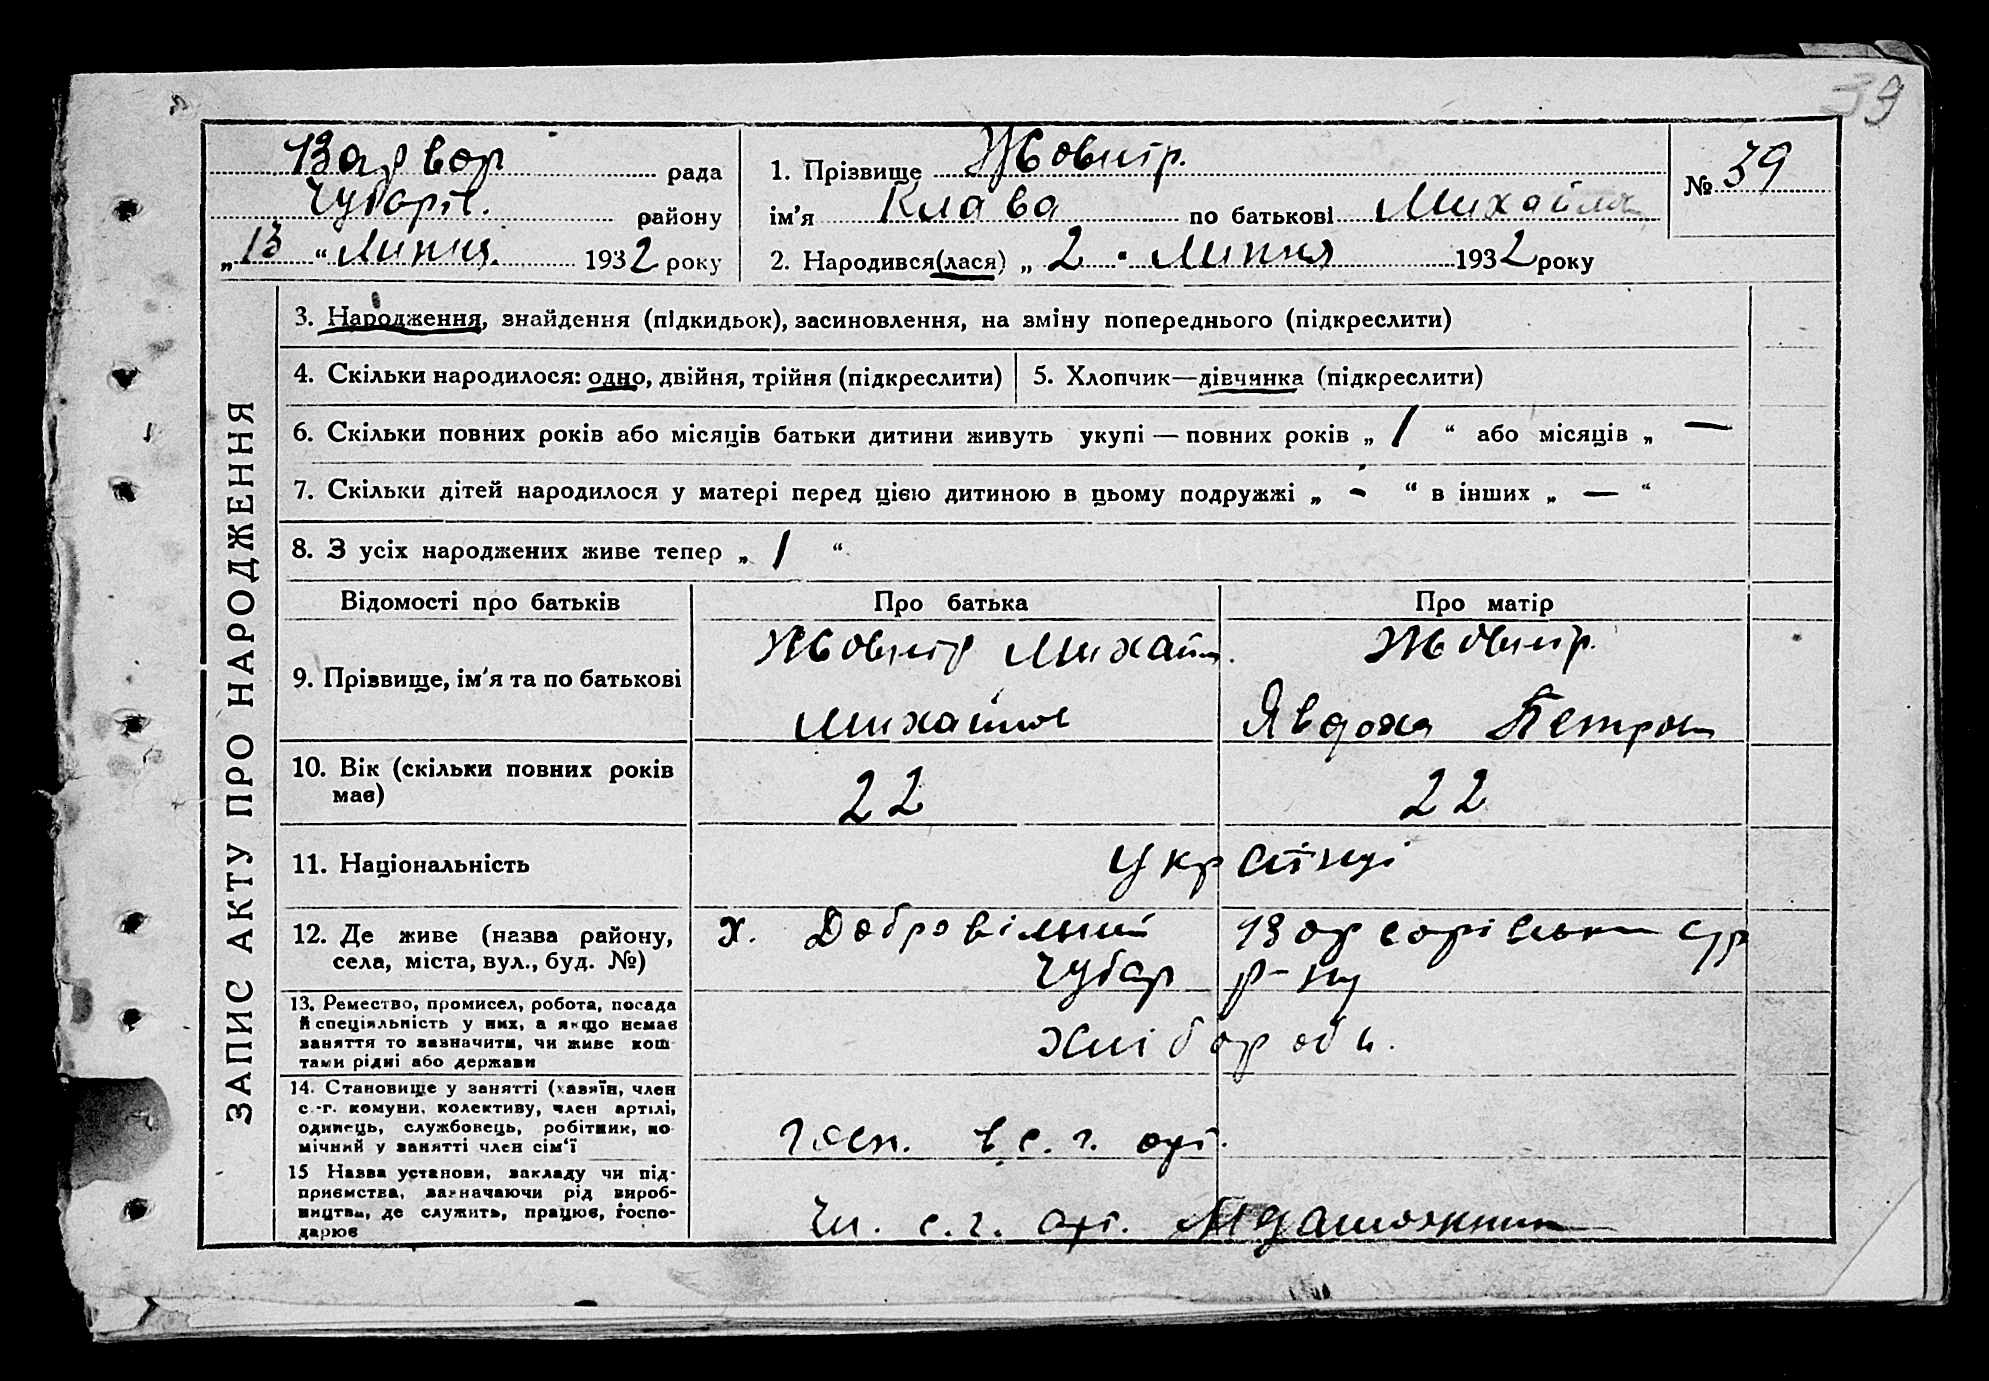 39
Варвар рада
Чубарів. району
„13“ Липня. 1932 року
1. Прізвище Жовнір.
ім'я Клава по батькові Михайлів
2. Народився(лася) „2“ Липня 1932 року
№ 39
ЗАПИС АКТУ ПРО НАРОДЖЕННЯ
3. Народження, знайдення (підкидьок), засиновлення, на зміну попереднього (підкреслити)
4. Скільки народилося: одно, двійня, трійня (підкреслити)
5. Хлопчик—дівчинка (підкреслити)
6. Скільки повних років або місяців батьки дитини живуть укупі — повних років „ 1 “ або місяців „ —
7. Скільки дітей народилося у матері перед цією дитиною в цьому подружжі „ - “ в інших „ — “
8. З усіх народжених живе тепер „ 1 “
Відомості про батьків Про батька Про матір
9. Прізвище, ім'я та по батькові
Жовнір Михайл.
Михайлов
Жовнір.
Явдоха Петров
10. Вік (скільки повних років
має)
22 22
11. Національність
Українці
12. Де живе (назва району,
села, міста, вул., буд. №)
х. Добровільний с/р
Чубар р-ну
13. Ремество, промисел, робота, посада
й спеціяльність у них, а якщо немає
заняття то зазначити, чи живе кош-
тами рідні або держави
Хлібороби.
14. Становище у занятті (хазяїн, член
с.-г. комуни, колективу, член артілі,
одинець, службовець, робітник, по-
мічний у занятті член сім'ї
Госп. в с. г. арт.
15 Назва установи, закладу чи під-
приємства, зазначаючи рід вироб-
ництва, де служить, працює, госпо-
дарює
Чл. с. г. арт.